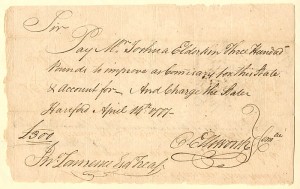 Sir
Pay Mr. Joshua Elderkin Three Hundred
Pounds to improve as Comissary for this State
& Account for And Charge the State
Hartford April 14th 1777.
£300
O Ellsworth
Jno Lawrence Esq Treasr